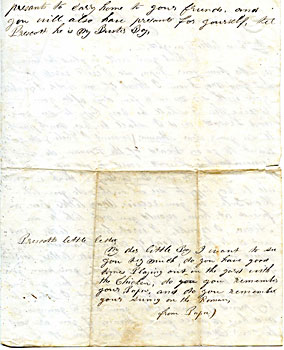 presants to carry home to your friends, and
you will also have presants for yourself, tel
Prescott he is My Darlir Boy,
Prescotts little letter
My der little Boy I want to see
you very much, do you have good
times Playing out in the yard with
the Chicken, do you you remember
your Papa, and do you remember
your on the
from Papa)